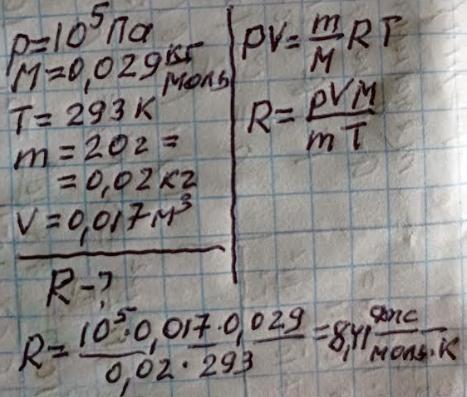 p=10⁵Па
M=0,029 кг/моль
T=293К
m=20г=
=0,02кг
V=0,017м³
R-?
pV=m/M RT
R=pVM/mT
R=10⁵·0,017·0,029/0,02·293=8,41 Дж/моль·К